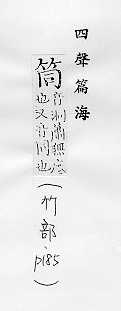 四聲篇海
筒
音洞簫無底
也又音同也
(竹部、p185)